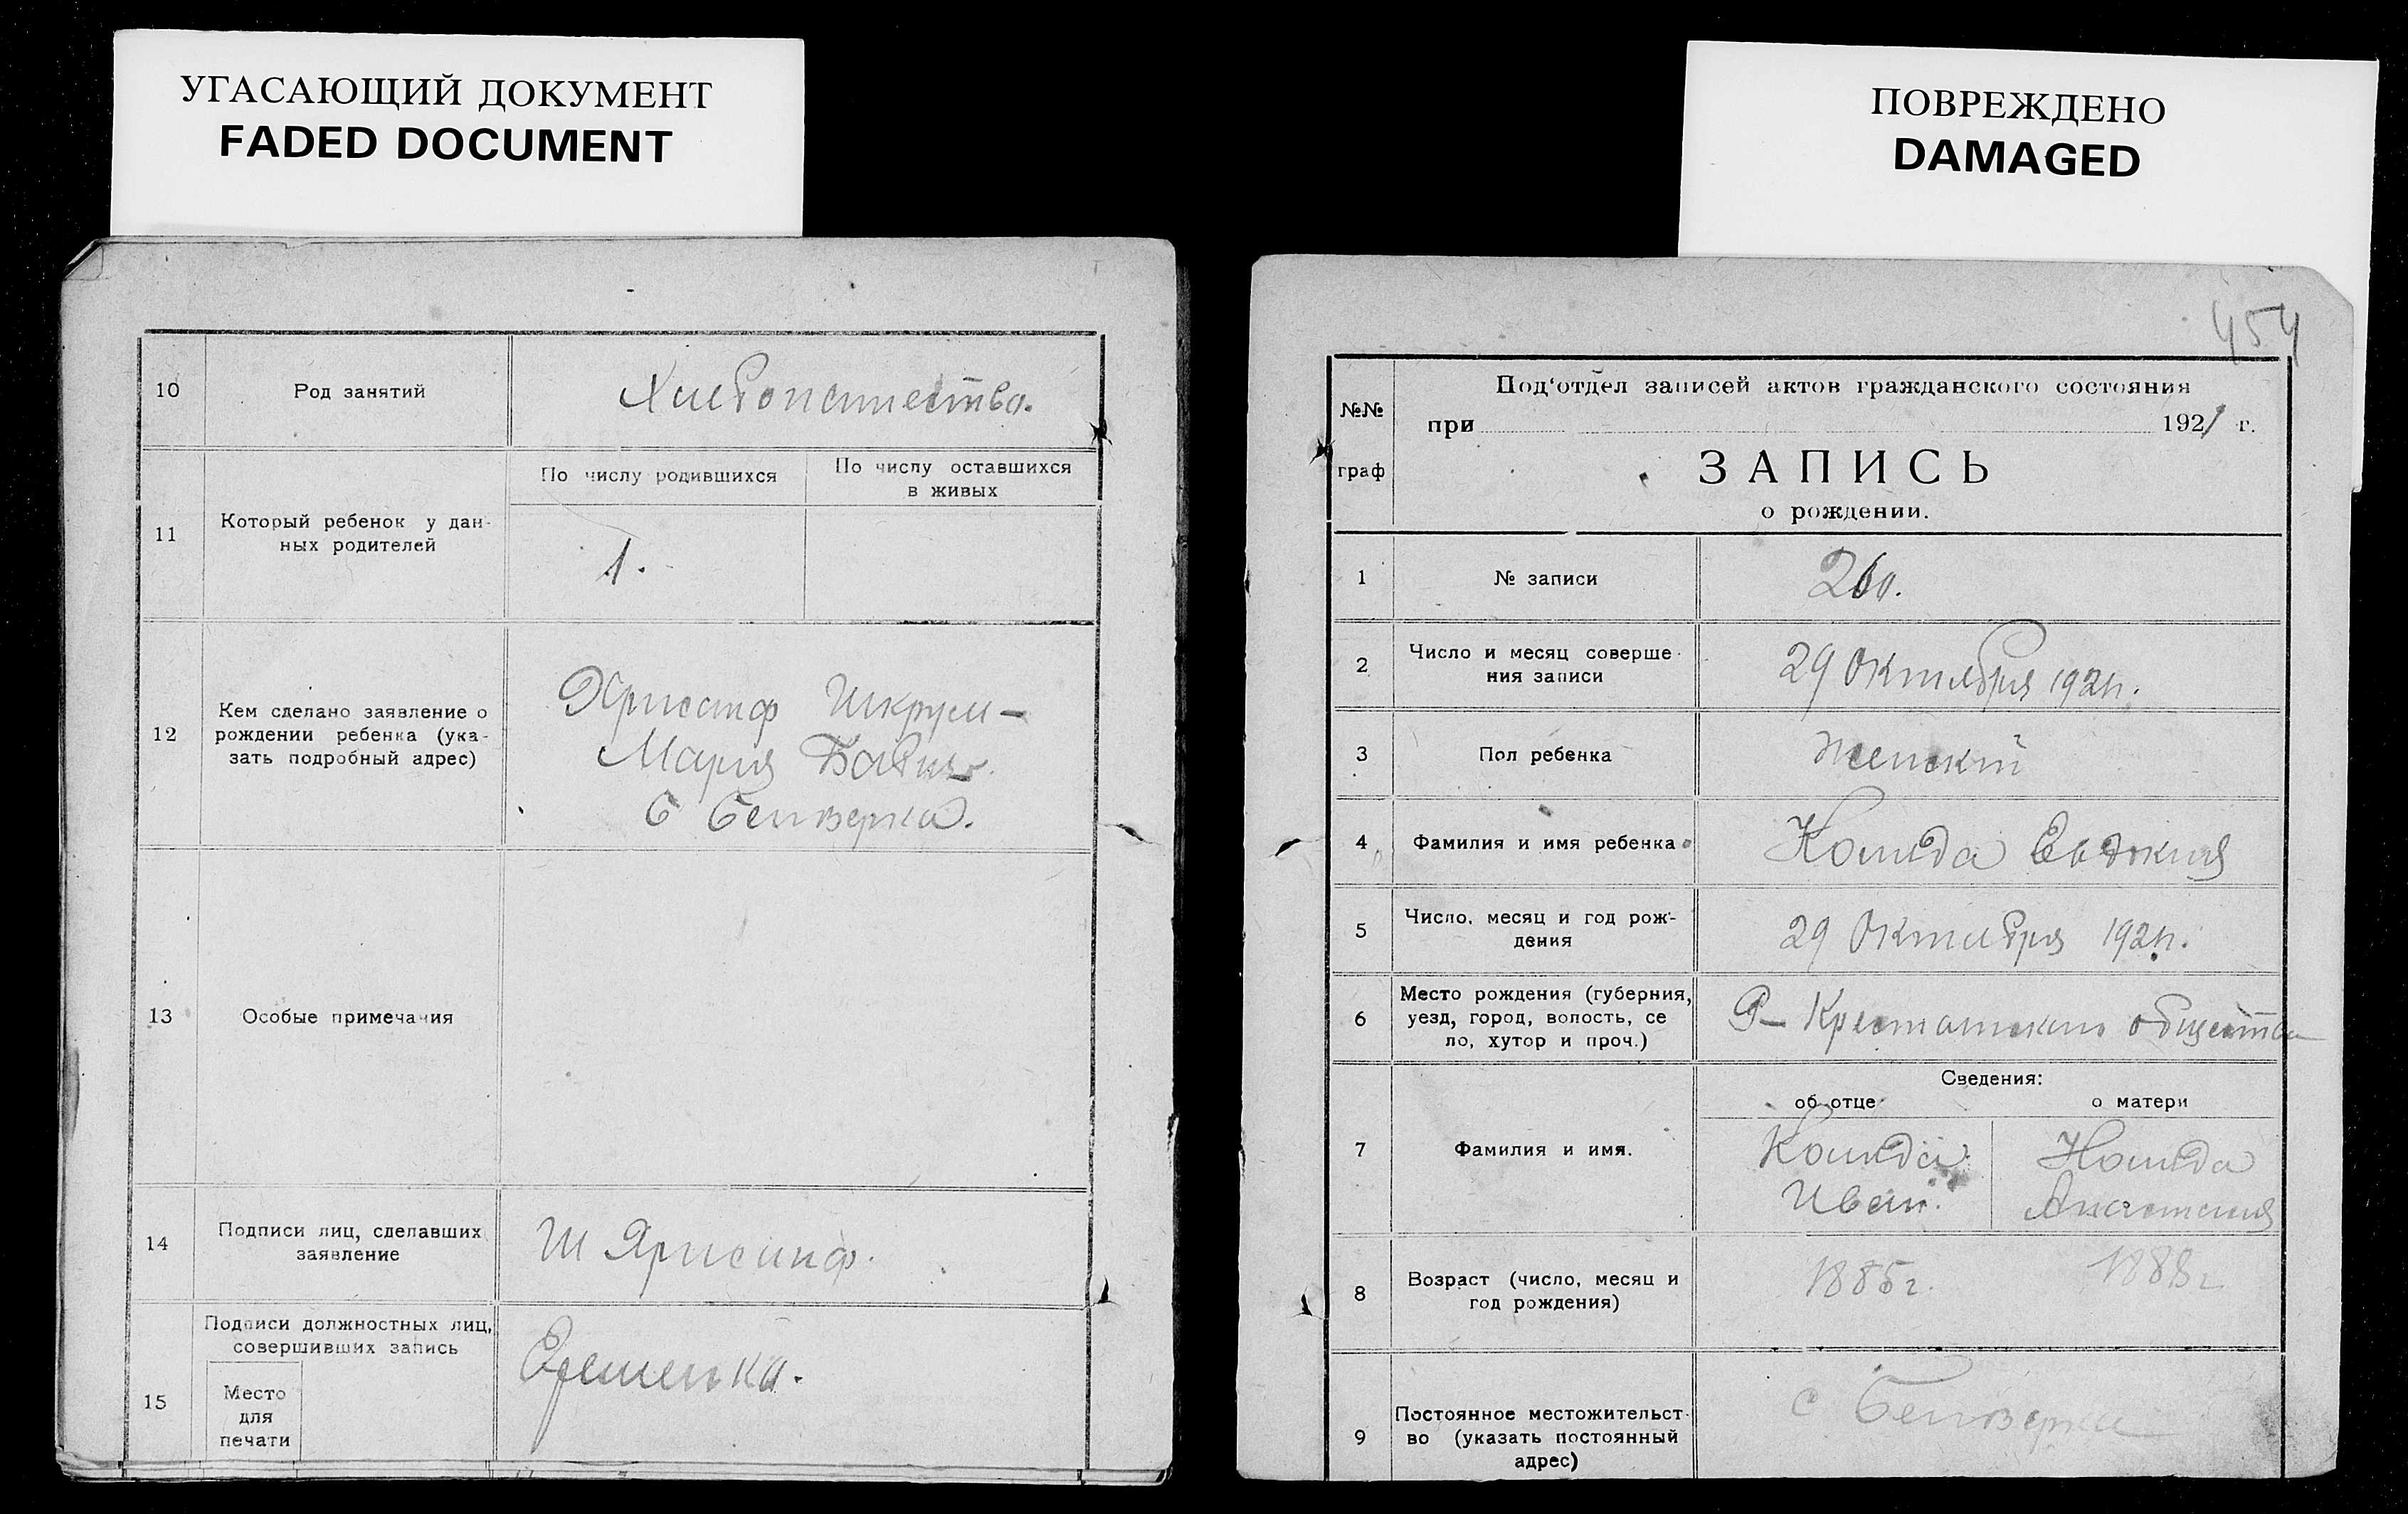 УГАСАЮЩИЙ ДОКУМЕНТ
FADED DOCUMENT
10
Род занятий
Хлебопашество.
11
Который ребенок у дан-
ных родителей
По числу родившихся
По числу оставшихся
в живых
1.
12
Кем сделано заявление о
рождении ребенка (ука-
зать подробный адрес)
Мария
13
Особые примечания
14
Подписи лиц, сделавших
заявление
15
Подписи должностных лиц,
совершивших запись
Место
для
печати
ПОВРЕЖДЕНО
DAMAGED
454
№№
граф
Под'отдел записей актов гражданского состояния
при 1921 г.
ЗАПИСЬ
о рождении.
1
№ записи
260.
2
Число и месяц соверше-
ния записи
29 Октября 1921г.
3
Пол ребенка
женский
4
Фамилия и имя ребенка
Евдокия
5
Число, месяц и год рож-
дения
29 Октября 1921г.
6
Место рождения (губерния,
уезд, город, волость, се
ло, хутор и проч.)
общества
7
Фамилия и имя.
Сведения:
об отце
о матери
Иван.
Анастасия
8
Возраст (число, месяц и
год рождения)
1885г.
1888г
9
Постоянное местожительст-
во (указать постоянный
адрес)
с